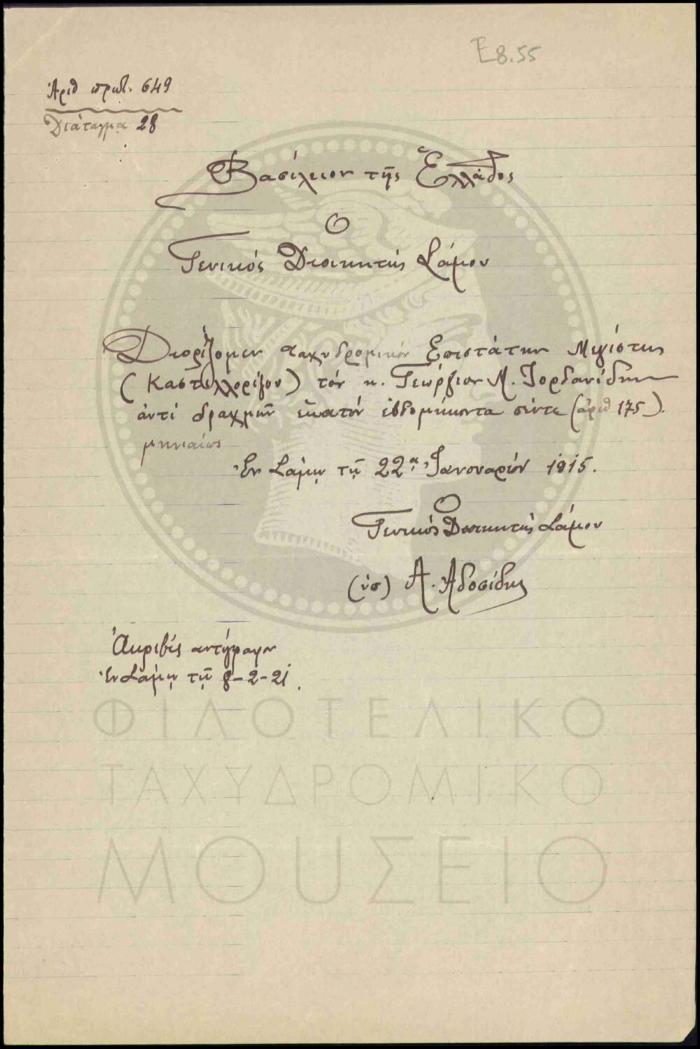 Ε8.55
Ἀριθ πρωτ. 649
Διάταγμα 28
Βασίλειον τῆς Ἑλλάδος
Ὁ
Γενικός Διοικητής Σάμου
Διορίζομεν ταχυδρομικόν Επιστάτην Μεγίστης
(Καστελλορίζου) τόν κ. Γεώργιον Μ. Ιορδανίδην
ἀντί δραχμῶν ἑκατόν ἑβδομήκοντα πέντε (ἀριθ 175).
μηνιαίως
Ἐν Σάμῳ τῇ 22ᾳ Ἰανουαρίου 1915.
Ὁ
Γενικός Διοικητής Σάμου
(ὑπ) Α. Αδοσίδης
Ἀκριβές αντίγραφον
Ἐν Σάμῳ τῇ 8-2-21.
ΦΙΛΟΤΕΛΙΚΟ
ΤΑΧΥΔΡΟΜΙΚΟ
ΜΟΥΣΕΙΟ